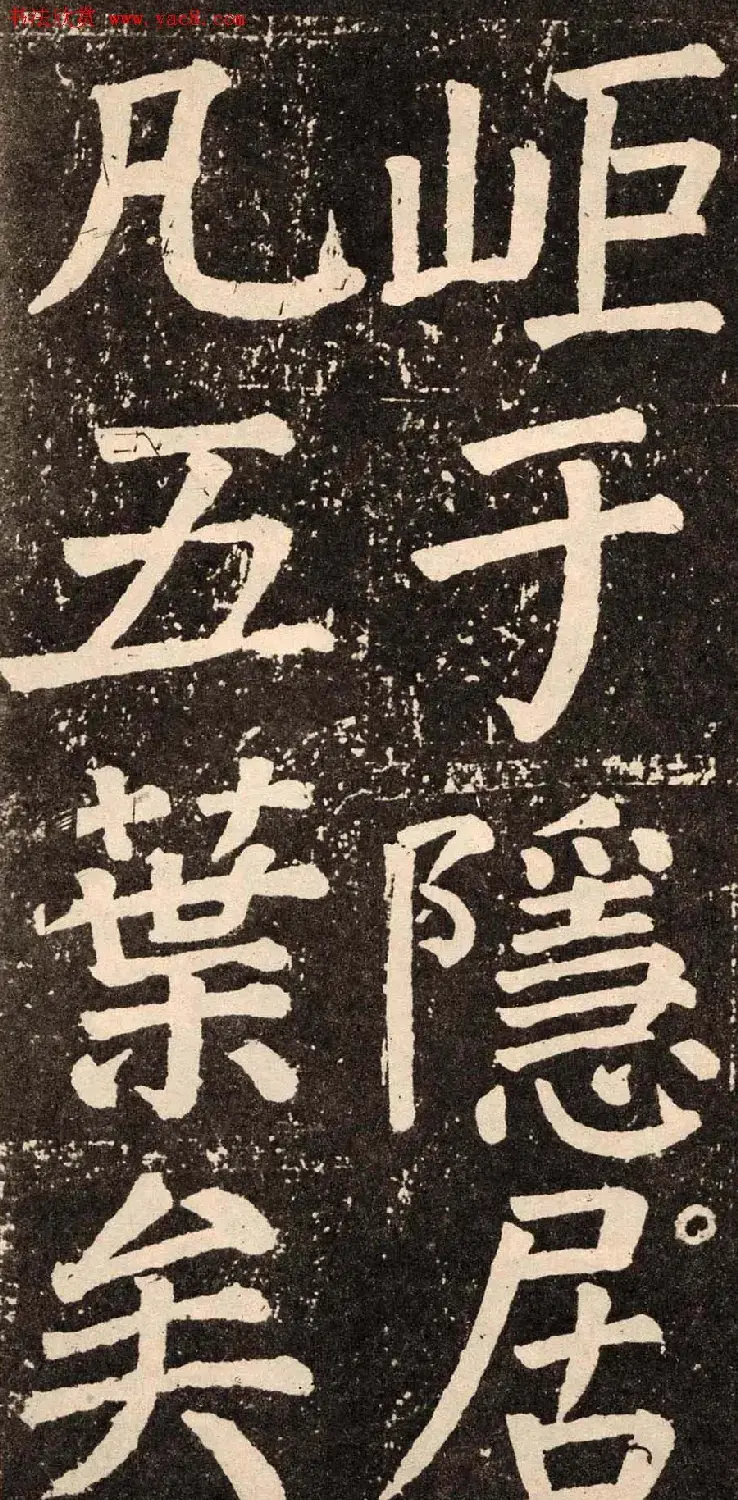 书法欣赏 www.yac8.com
岠于隱居
凡五葉矣